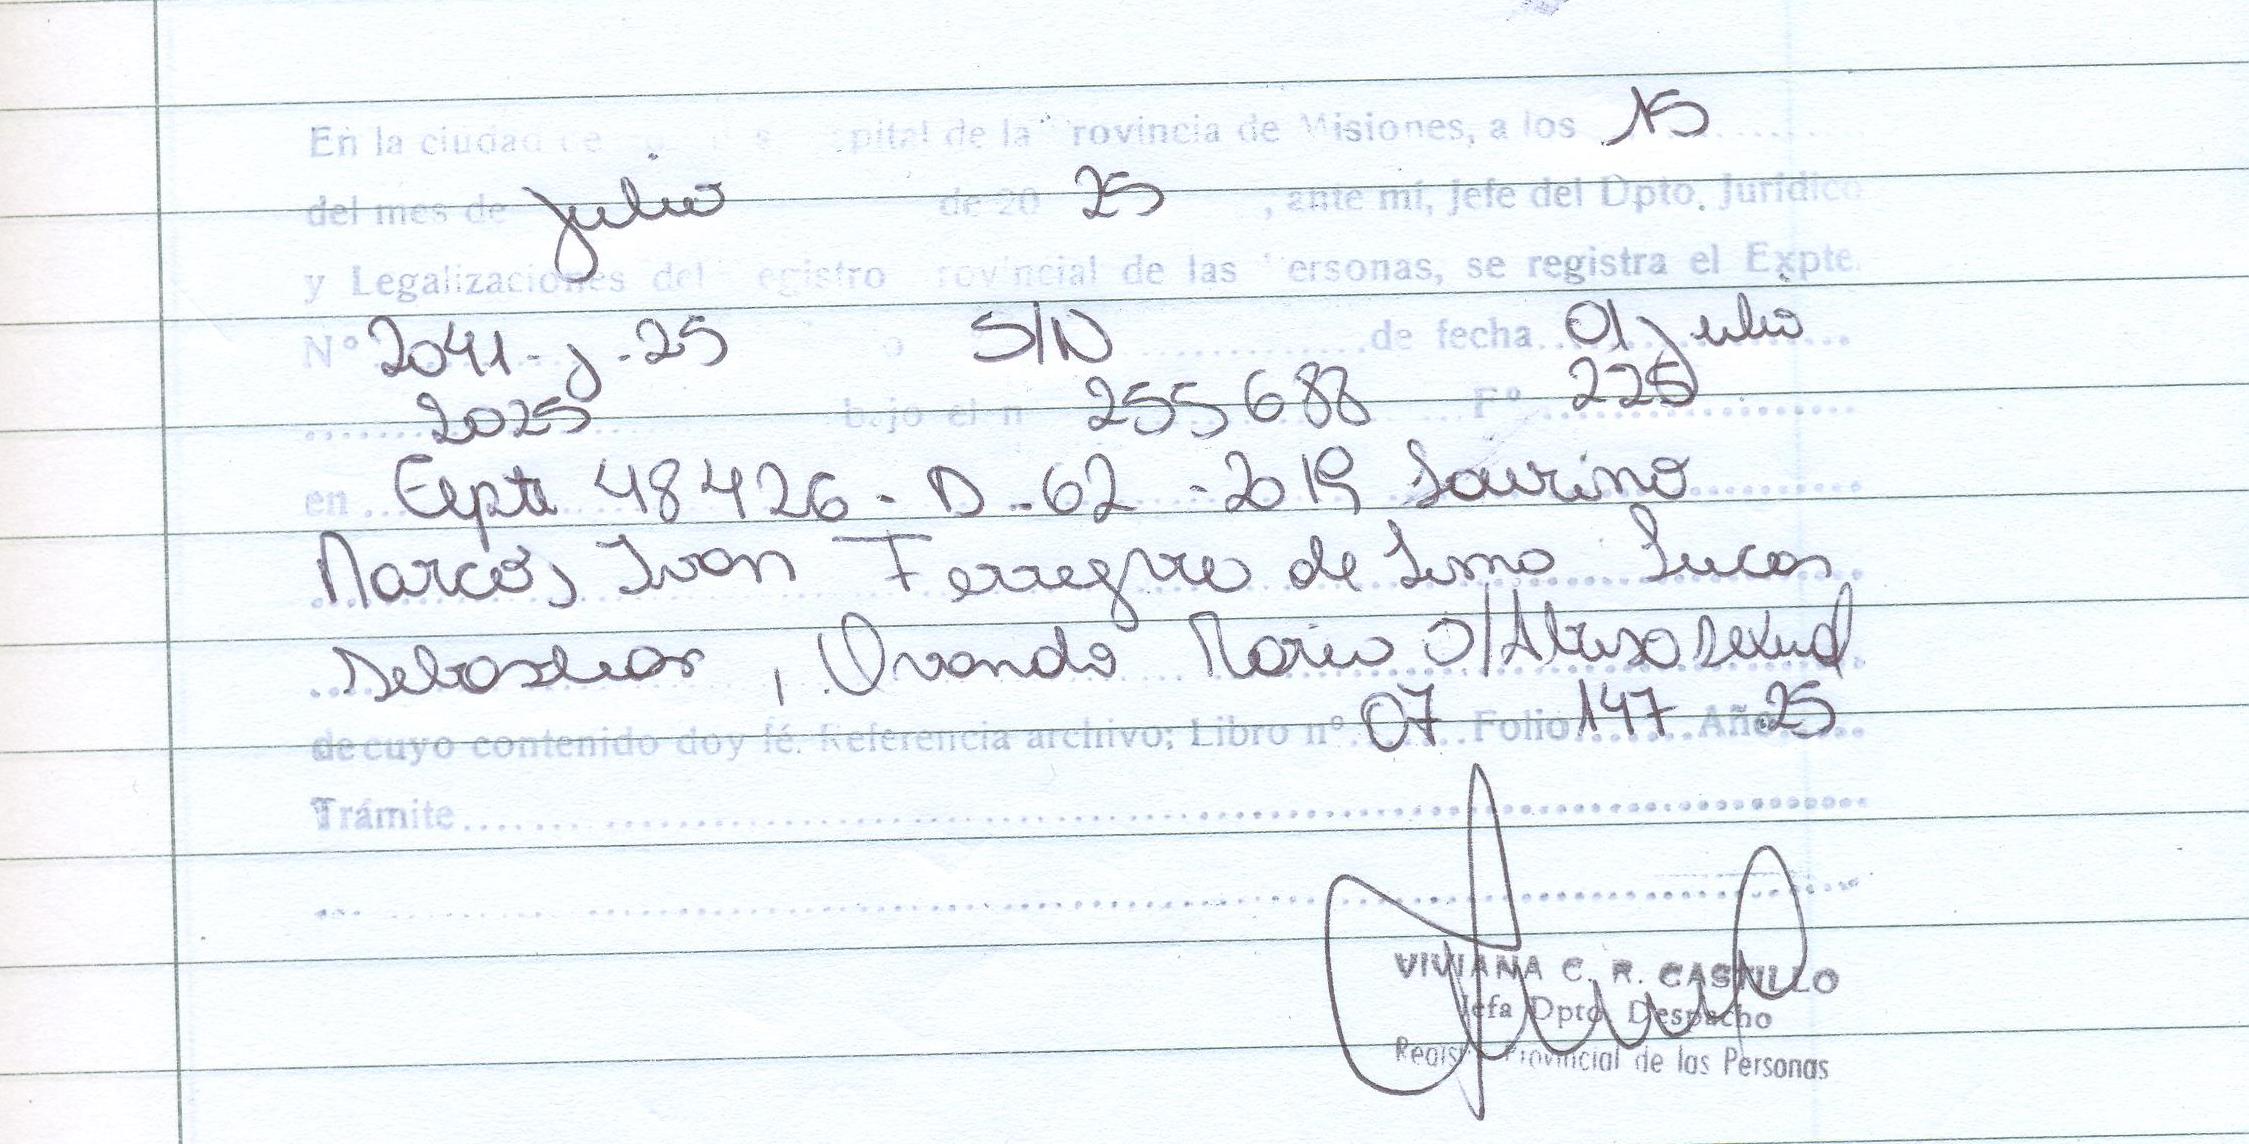 En la ciudad de capital de la Provincia de Misiones, a los 15
del mes de julio de 20 25, ante mí, Jefe del Dpto. Jurídico
y Legalizaciones del Registro Provincial de las Personas, se registra el Expte.
Nº 2041-J-25 o S/N de fecha 01 julio
2025 bajo el n 255688 Fº 225
en Expte 48426-D-62-2019 Sourino
Marcos, Ivan Ferreyro de Lima Lucas
Sebastian, Ovando Mario S/Abuso sexual
de cuyo contenido doy fé. Referencia archivo; Libro nº 07 Folio 147 Año 25
Trámite
VIVIANA C. R. CASTILLO
Jefa Dpto. Despacho
Registro Provincial de las Personas